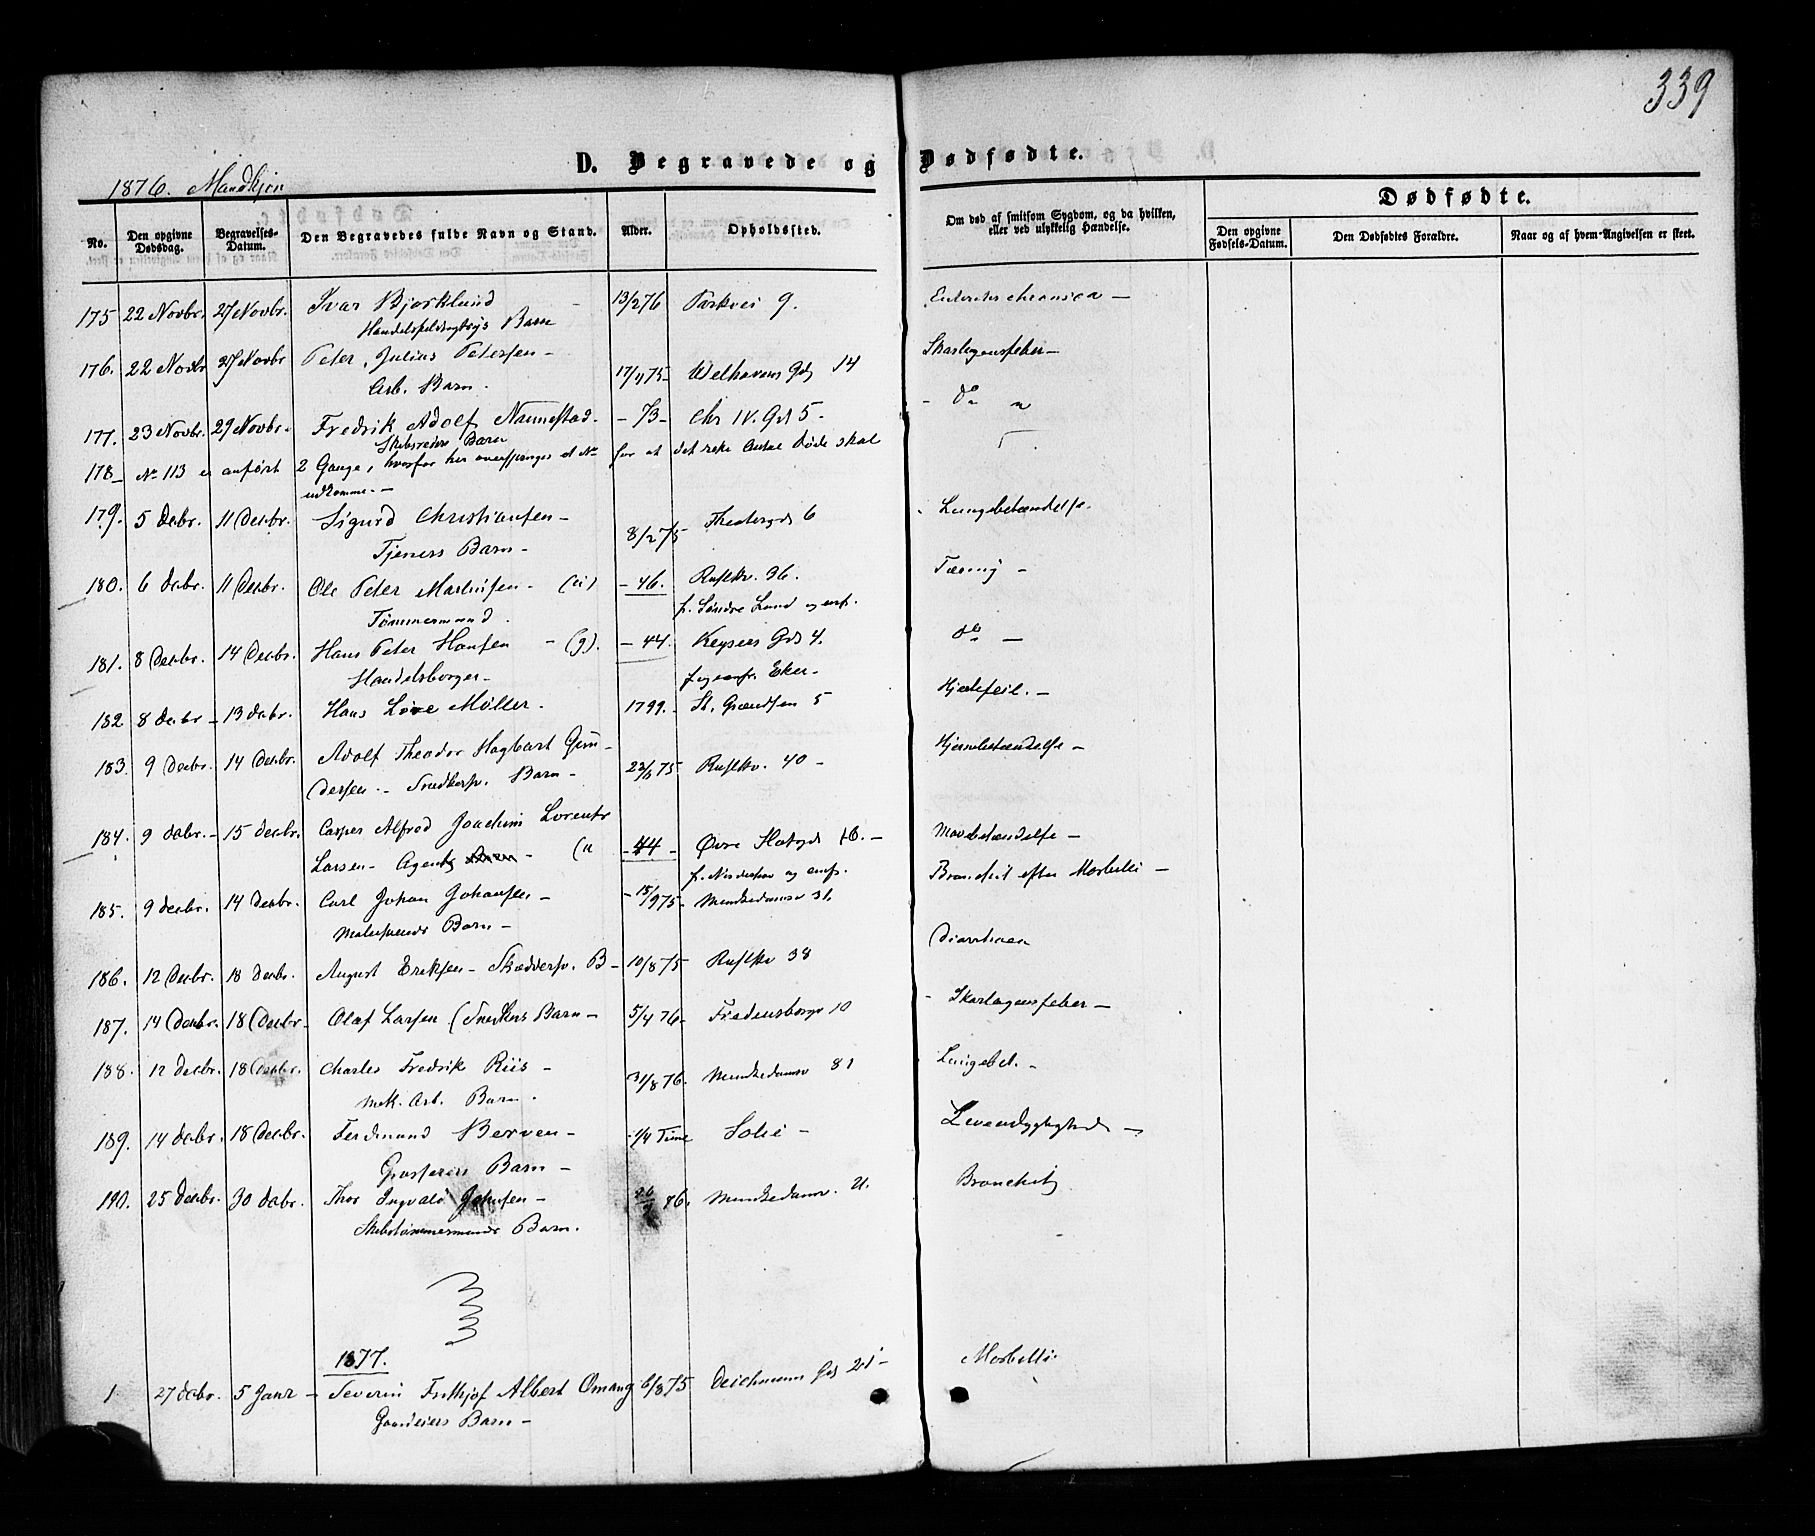 339
D. Begravede og Dødfødte.
1876. Mandkjøn
No.
Den opgivne Dødsdag.
Begravelses-Datum.
Den Begravedes fulde Navn og Stand.
Alder.
Opholdssted.
Om død af smitsom Sygdom, og da hvilken, eller ved ulykkelig Hændelse.
Dødfødte.
Den opgivne Fødsels-Datum.
Den Dødfødtes Forældre.
Naar og af hvem Angivelsen er skeet.
175 22 Novbr. 27 Novbr. Ivar Bjorklund 13/2 76 Parkvei 9. chronica —
Barn
176. 22 Novbr 27 Novbr Peter Julius Petersen — 17/11 75 — Welhavens Gd 14 Skarlagensfeber —
Arb. Barn.
177. 23 Novbr. 29 Novbr. Fredrik Adolf Nannestad. — 73 — Chr IV. Gd 5 — do
Barn
178 — No 113 er anført 2 Gange, hvorfor her overspringes et No for at det rette Antal Døde skal
udkomme. —
179. 5 Decbr. 11 Decbr. Sigurd Christiansen — 8/2 75 Theatergd 6 Lungebetændelse.
Tjeners Barn —
180. 6 Decbr. 11 Decbr. Ole Peter Martinsen — (u) — 46. Ruselkv. 36. Tæring —
Tømmermand. f. Søndre Land
181. 8 Decbr. 14 Decbr. Hans Peter Hansen — (g). — 44. Keysers Gd 4. do —
Handelsborger — Eker —
182 8 Decbr — 13 Decbr. Hans Love Møller. 1799. — St. Grændsen 5 Hjertefeil. —
183. 9 Decbr. 14 Decbr. Adolf Theodor Hagbart Gun- 75 Ruselkv. 40 — Hjernebetændelse —
dersen — Snedkersv. Barn —
184. 9 Decbr. — 15 Decbr. Casper Alfred Joachim Lorentz — 44 — Øvre Slotsgd — Mavebetændelse —
Larsen — Agents (u
185. 9 Decbr. 14 Decbr. Carl Johan Johansen — 15/9 75 — Munkedamsv 31. Bronchit efter Morbilli —
Barn —
186. 12 Decbr. 18 Decbr. August Eriksen — Skrædersv. B — 10/8 75 Ruselkv 38 Diarrhoea
187. 14 Decbr. 18 Decbr — Olaf Larsen (Snedkers Barn — 5/4 76 — Fredensborgv 10 Skarlagensfeber —
188. 12 Decbr. 18 Decbr. Charles Fredrik Riis — 31/8 76. Munkedamsv 81 Lungebet. —
Mek. Arb. Barn.
189. 14 Decbr. 18 Decbr. Ferdinand Berven — 1/4 Time Solie —
Barn —
190. 25 Decbr. 30 Decbr. Thor Ingvald Johnsen — 76. Munkedamsv. 21. Bronchit
Skibstømmermands Barn.
1877.
1 27 Decbr. 5 Janr — Severin Frithjof Albert Omang 6/8 75 Deichmans Gd 21 — Morbilli
Gaardeiers Barn —